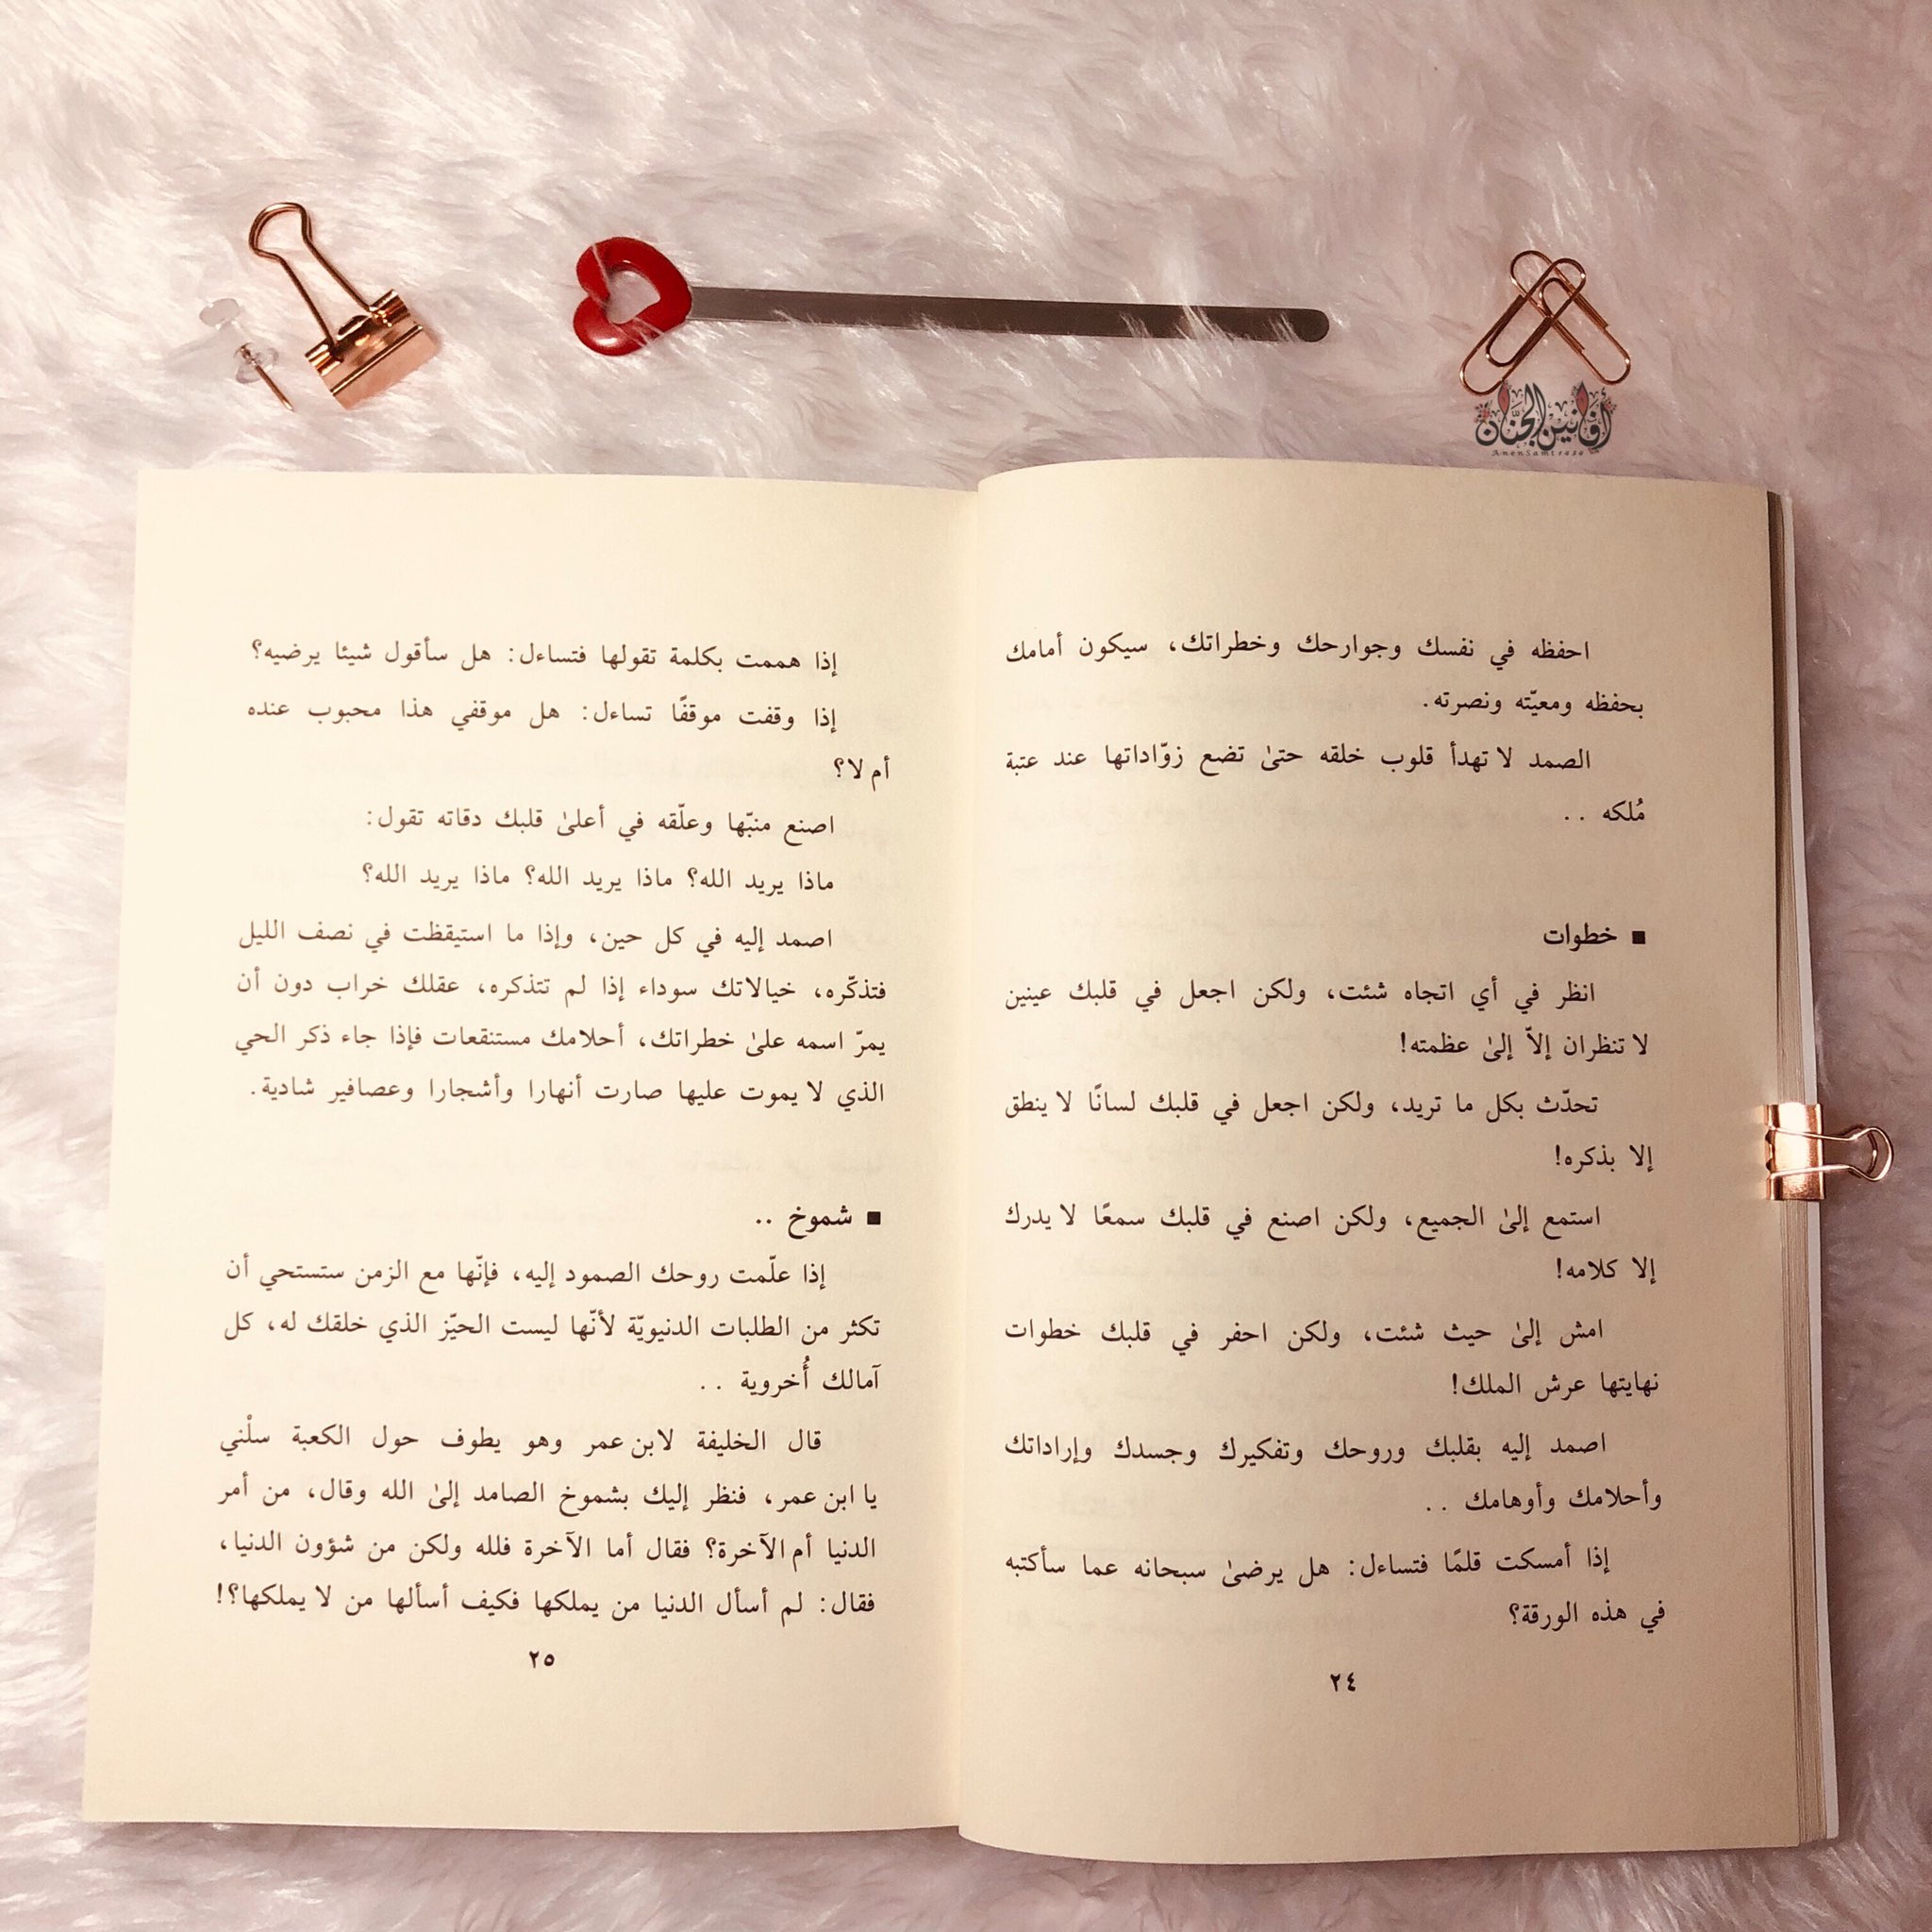 أفانين الجنان
احفظه في نفسك وجوارحك وخطراتك، سيكون أمامك
بحفظه ومعيّته ونصرته.
الصمد لا تهدأ قلوب خلقه حتىٰ تضع زوّاداتها عند عتبة
مُلكه ..
■ خطوات
انظر في أي اتجاه شئت، ولكن اجعل في قلبك عينين
لا تنظران إلاّ إلىٰ عظمته!
تحدّث بكل ما تريد، ولكن اجعل في قلبك لسانًا لا ينطق
إلا بذكره!
استمع إلىٰ الجميع، ولكن اصنع في قلبك سمعًا لا يدرك
إلا كلامه!
امش إلىٰ حيث شئت، ولكن احفر في قلبك خطوات
نهايتها عرش الملك!
اصمد إليه بقلبك وروحك وتفكيرك وجسدك وإراداتك
وأحلامك وأوهامك ..
إذا أمسكت قلمًا فتساءل: هل يرضىٰ سبحانه عما سأكتبه
في هذه الورقة؟
٢٤
إذا هممت بكلمة تقولها فتساءل: هل سأقول شيئا يرضيه؟
إذا وقفت موقفًا تساءل: هل موقفي هذا محبوب عنده
أم لا؟
اصنع منبّها وعلّقه في أعلىٰ قلبك دقاته تقول:
ماذا يريد الله؟ ماذا يريد الله؟ ماذا يريد الله؟
اصمد إليه في كل حين، وإذا ما استيقظت في نصف الليل
فتذكّره، خيالاتك سوداء إذا لم تتذكره، عقلك خراب دون أن
يمرّ اسمه علىٰ خطراتك، أحلامك مستنقعات فإذا جاء ذكر الحي
الذي لا يموت عليها صارت أنهارا وأشجارا وعصافير شادية.
■ شموخ ..
إذا علّمت روحك الصمود إليه، فإنّها مع الزمن ستستحي أن
تكثر من الطلبات الدنيويّة لأنّها ليست الحيّز الذي خلقك له، كل
آمالك أُخروية ..
قال الخليفة لابن عمر وهو يطوف حول الكعبة سلْني
يا ابن عمر، فنظر إليك بشموخ الصامد إلىٰ الله وقال، من أمر
الدنيا أم الآخرة؟ فقال أما الآخرة فلله ولكن من شؤون الدنيا،
فقال: لم أسأل الدنيا من يملكها فكيف أسألها من لا يملكها؟!
٢٥